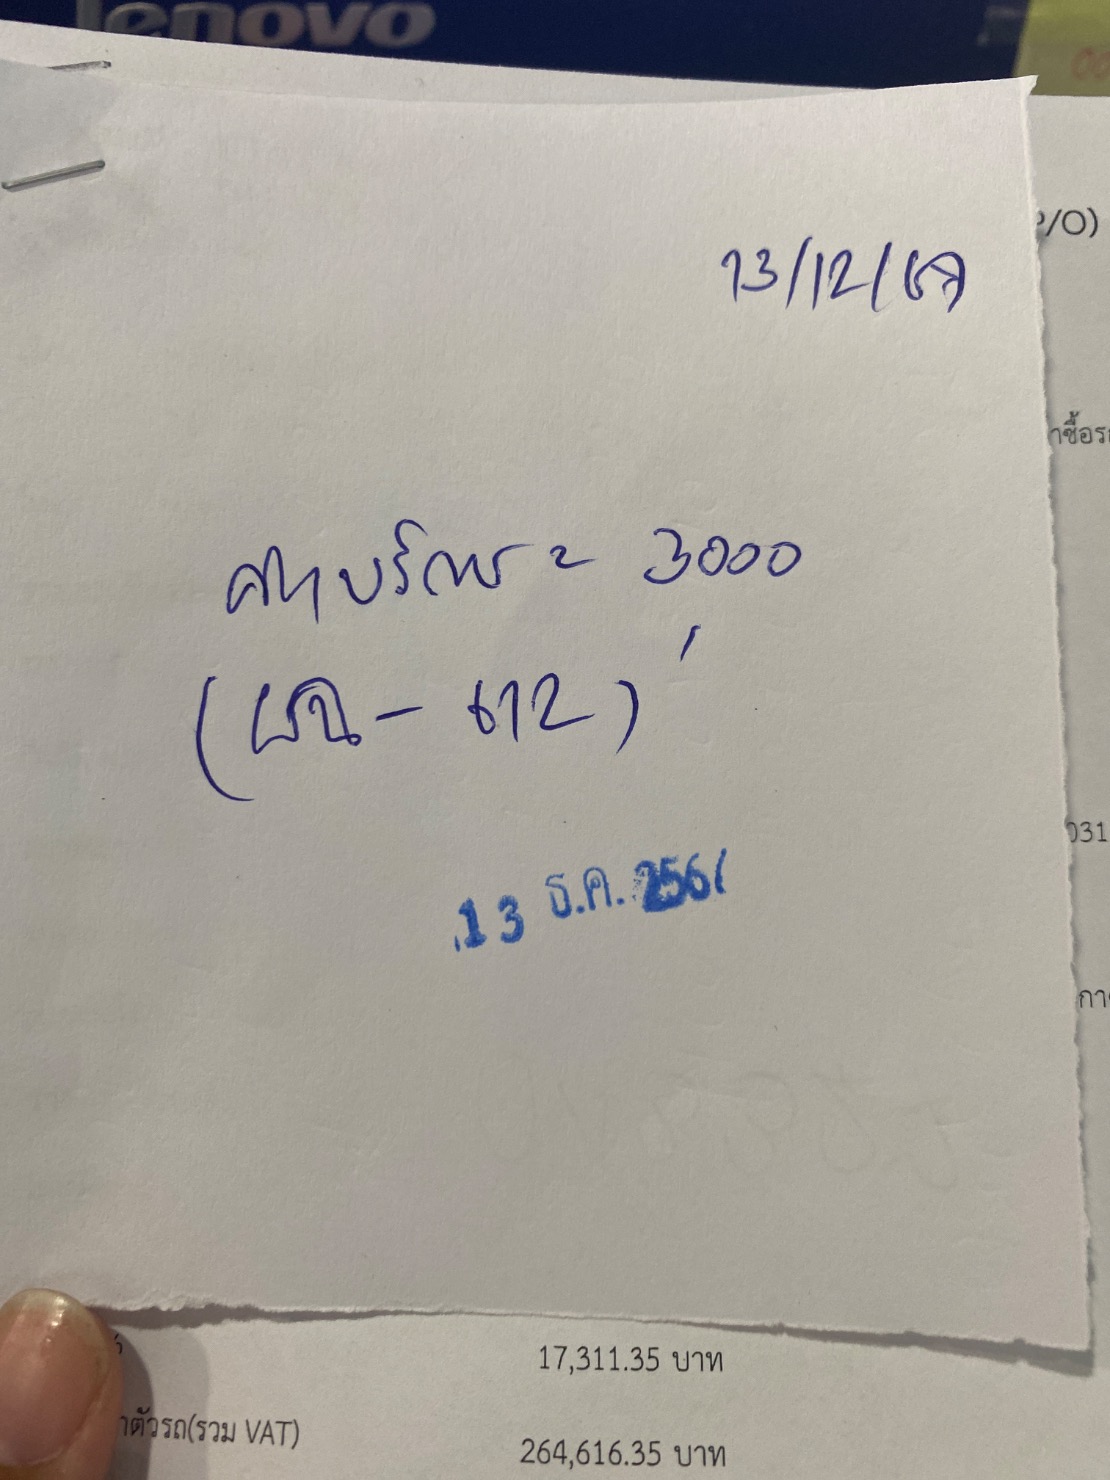 lenovo
/O)
13/12/67
ค่าบริการ = 3000
612)
031
13 ธ.ค. 256
17,311.35 บาท
ตัวรถ(รวม VAT)
264,616.35 บาท